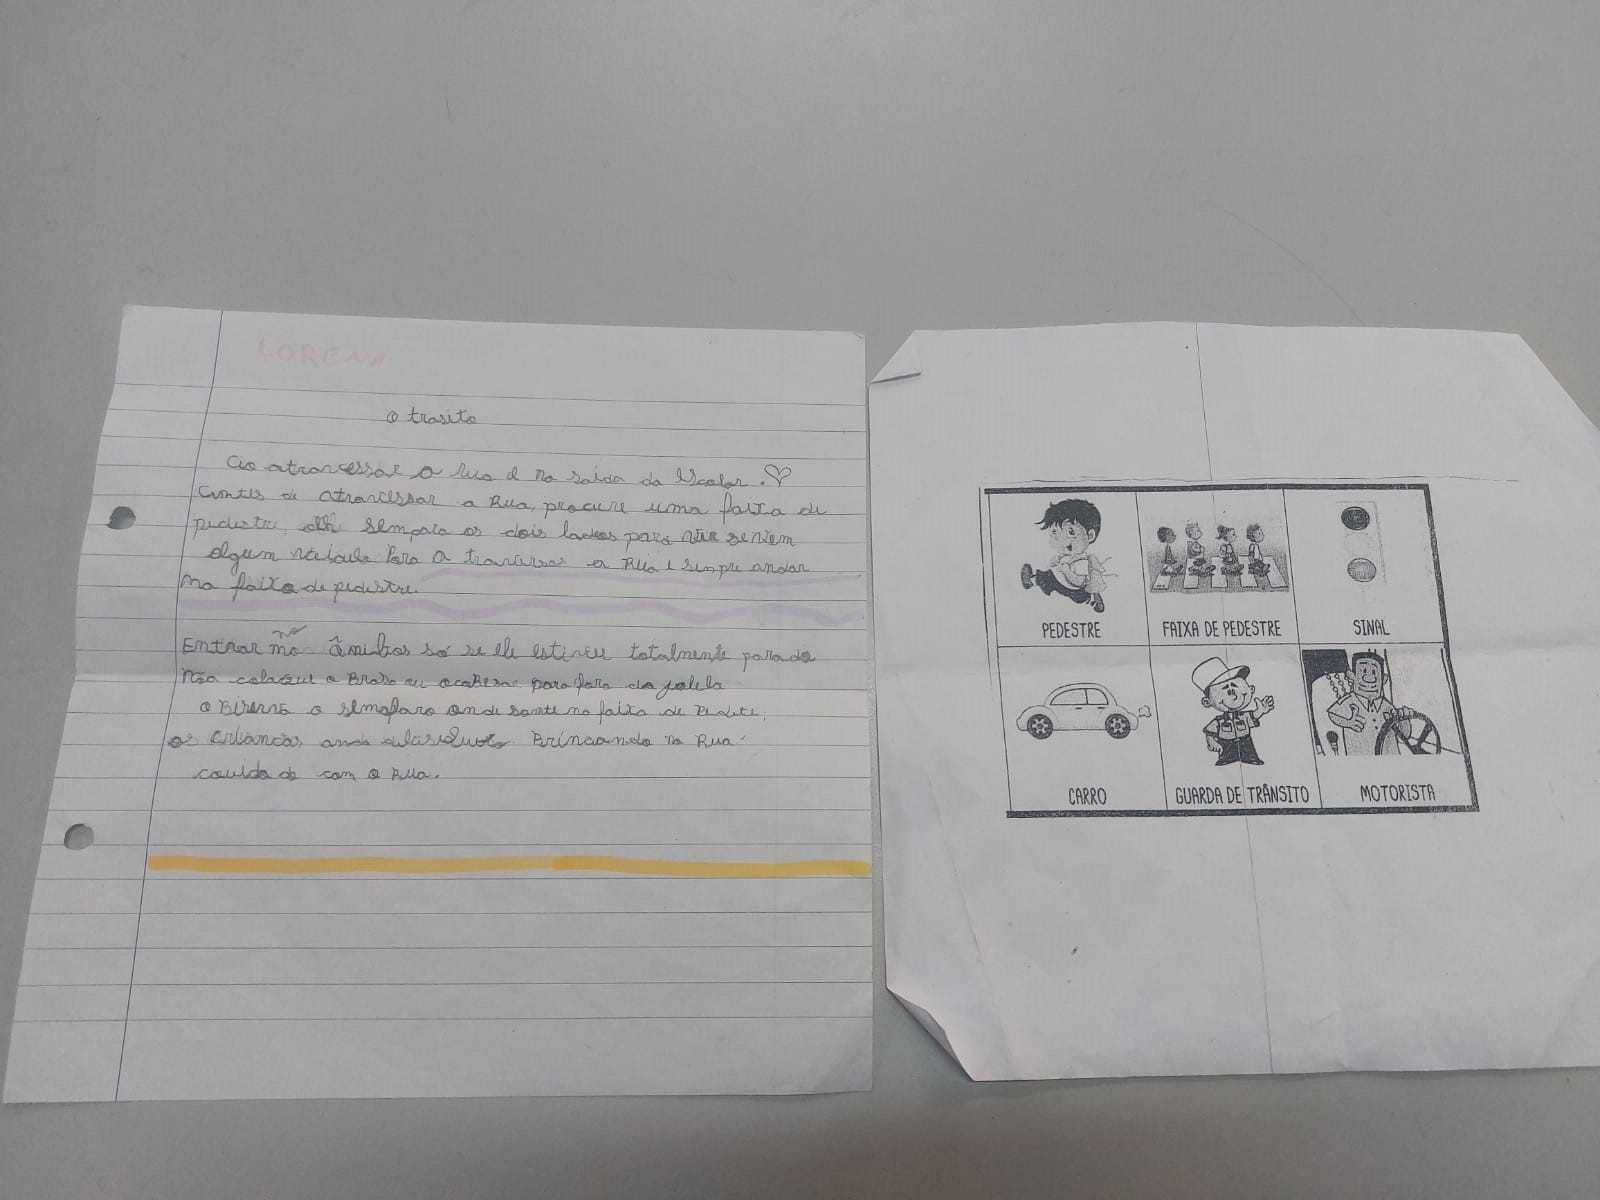 LORENA
O trasito
Ao atravessar a rua e na saida da Escolar.
Antes de atravessar a Rua, procure uma faixa de
pedestre, olh sempara os dois lados para vir se vem
algum veículo Para a traversar a Rua e sempre andar
na faixa de pedestre.
Entrar no Ônibos só se ele estiver totalmente parado
Não coloque o Braso ou acabesa para fora da
O o semaforo onde na faixa de
os crianças Brincando na Rua
couida do com a Rua.
PEDESTRE
FAIXA DE PEDESTRE
SINAL
CARRO
GUARDA DE TRÂNSITO
MOTORISTA